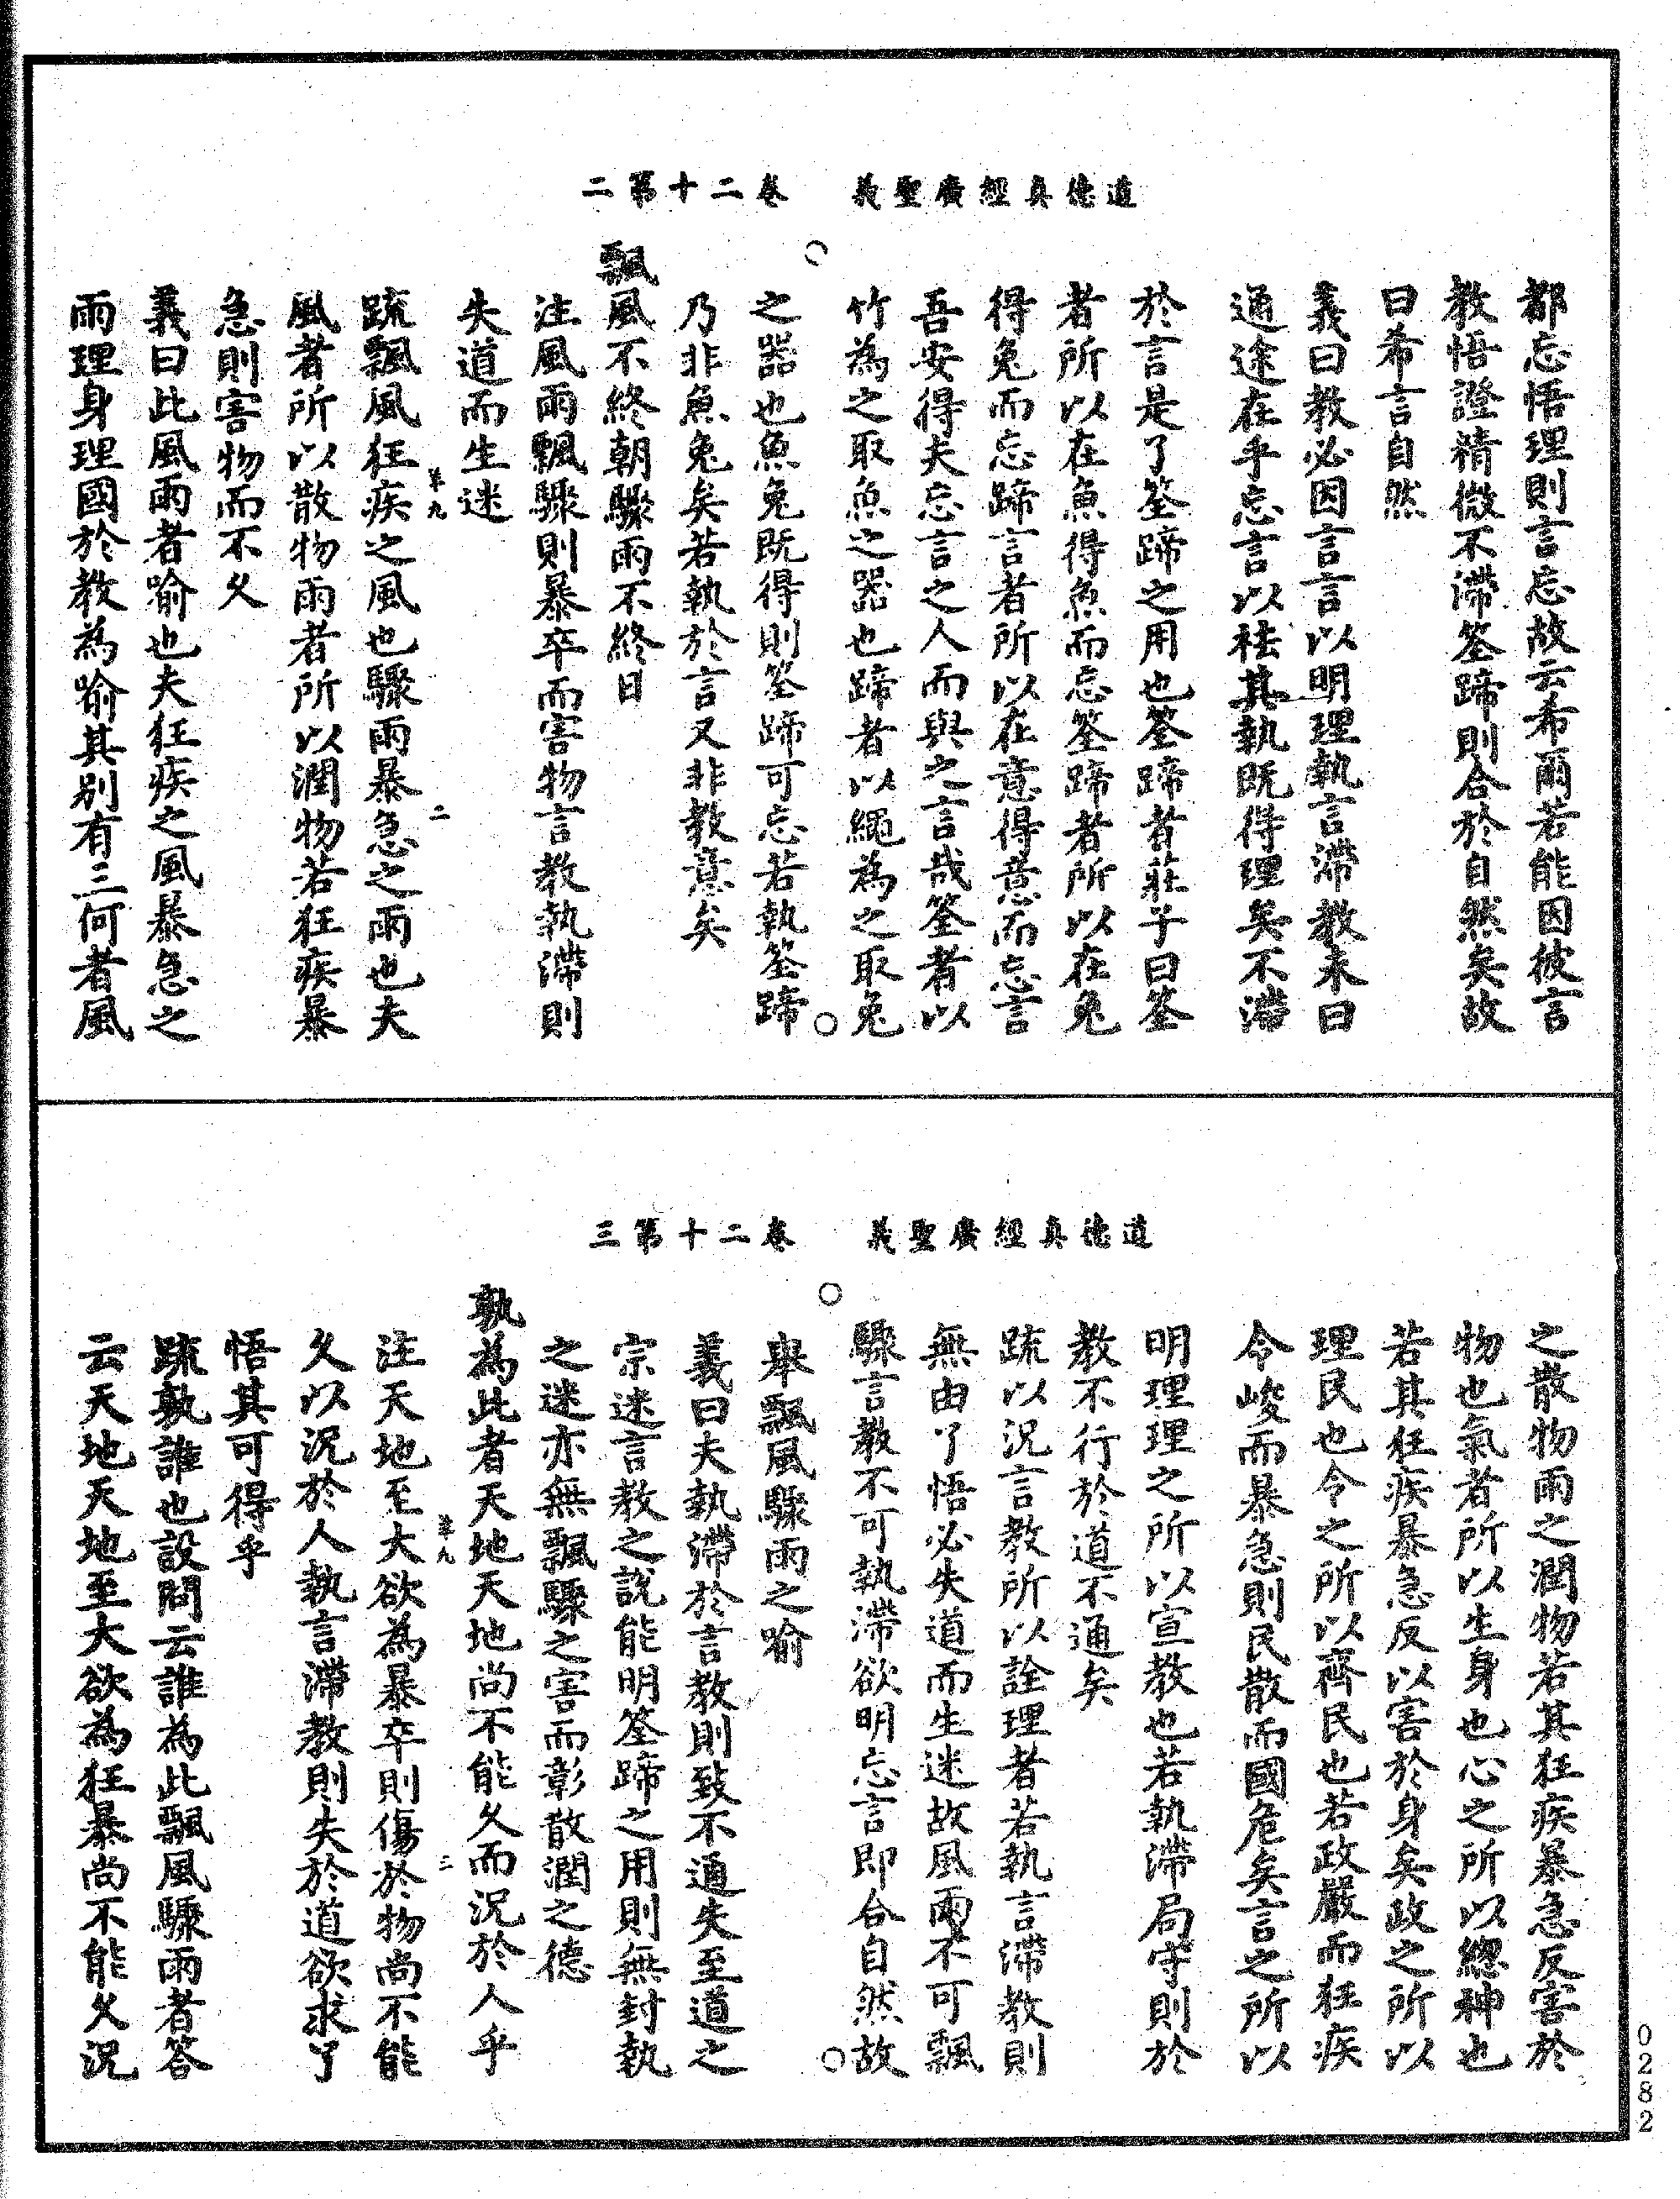 道德真經廣聖義　卷二十第二
都忘悟理則言忘故云希爾若能因彼言
教悟證精微不滯筌蹄則合於自然矣故
曰希言自然
義曰教必因言言以明理執言滯教未曰
通途在乎忘言以祛其執既得理矣不滯
於言是了筌蹄之用也筌蹄者莊子曰筌
者所以在魚得魚而忘筌蹄者所以在兔
得兔而忘蹄言者所以在意得意而忘言
吾安得夫忘言之人而與之言哉筌者以
竹為之取魚之器也蹄者以繩為之取兔
之器也魚兔既得則筌蹄可忘若執筌蹄
乃非魚兔矣若執於言又非教意矣
飄風不終朝驟雨不終日
注風雨飄驟則暴卒而害物言教執滯則
失道而生迷
羔九　二
疏飄風狂疾之風也驟雨暴急之雨也夫
風者所以散物雨者所以潤物若狂疾暴
急則害物而不久
義曰此風雨者喻也夫狂疾之風暴急之
雨理身理國於教為喻其別有三何者風
道德真經廣聖義　卷二十第三
之散物雨之潤物若其狂疾暴急反害於
物也氣者所以生身也心之所以總神也
若其狂疾暴急反以害於身矣政之所以
理民也令之所以齊民也若政嚴而狂疾
令峻而暴急則民散而國危矣言之所以
明理理之所以宣教也若執滯局守則於
教不行於道不通矣
疏以況言教所以詮理者若執言滯教則
無由了悟必失道而生迷故風雨不可飄
驟言教不可執滯欲明忘言即合自然故
舉飄風驟雨之喻
義曰夫執滯於言教則致不通失至道之
宗迷言教之說能明筌蹄之用則無封執
之迷亦無飄驟之害而彰散潤之德
孰為此者天地天地尚不能久而況於人乎
羔九　三
注天地至大欲為暴卒則傷於物尚不能
久以況於人執言滯教則失於道欲求了
悟其可得乎
疏孰誰也設問云誰為此飄風驟雨者答
云天地天地至大欲為狂暴尚不能久況
0282